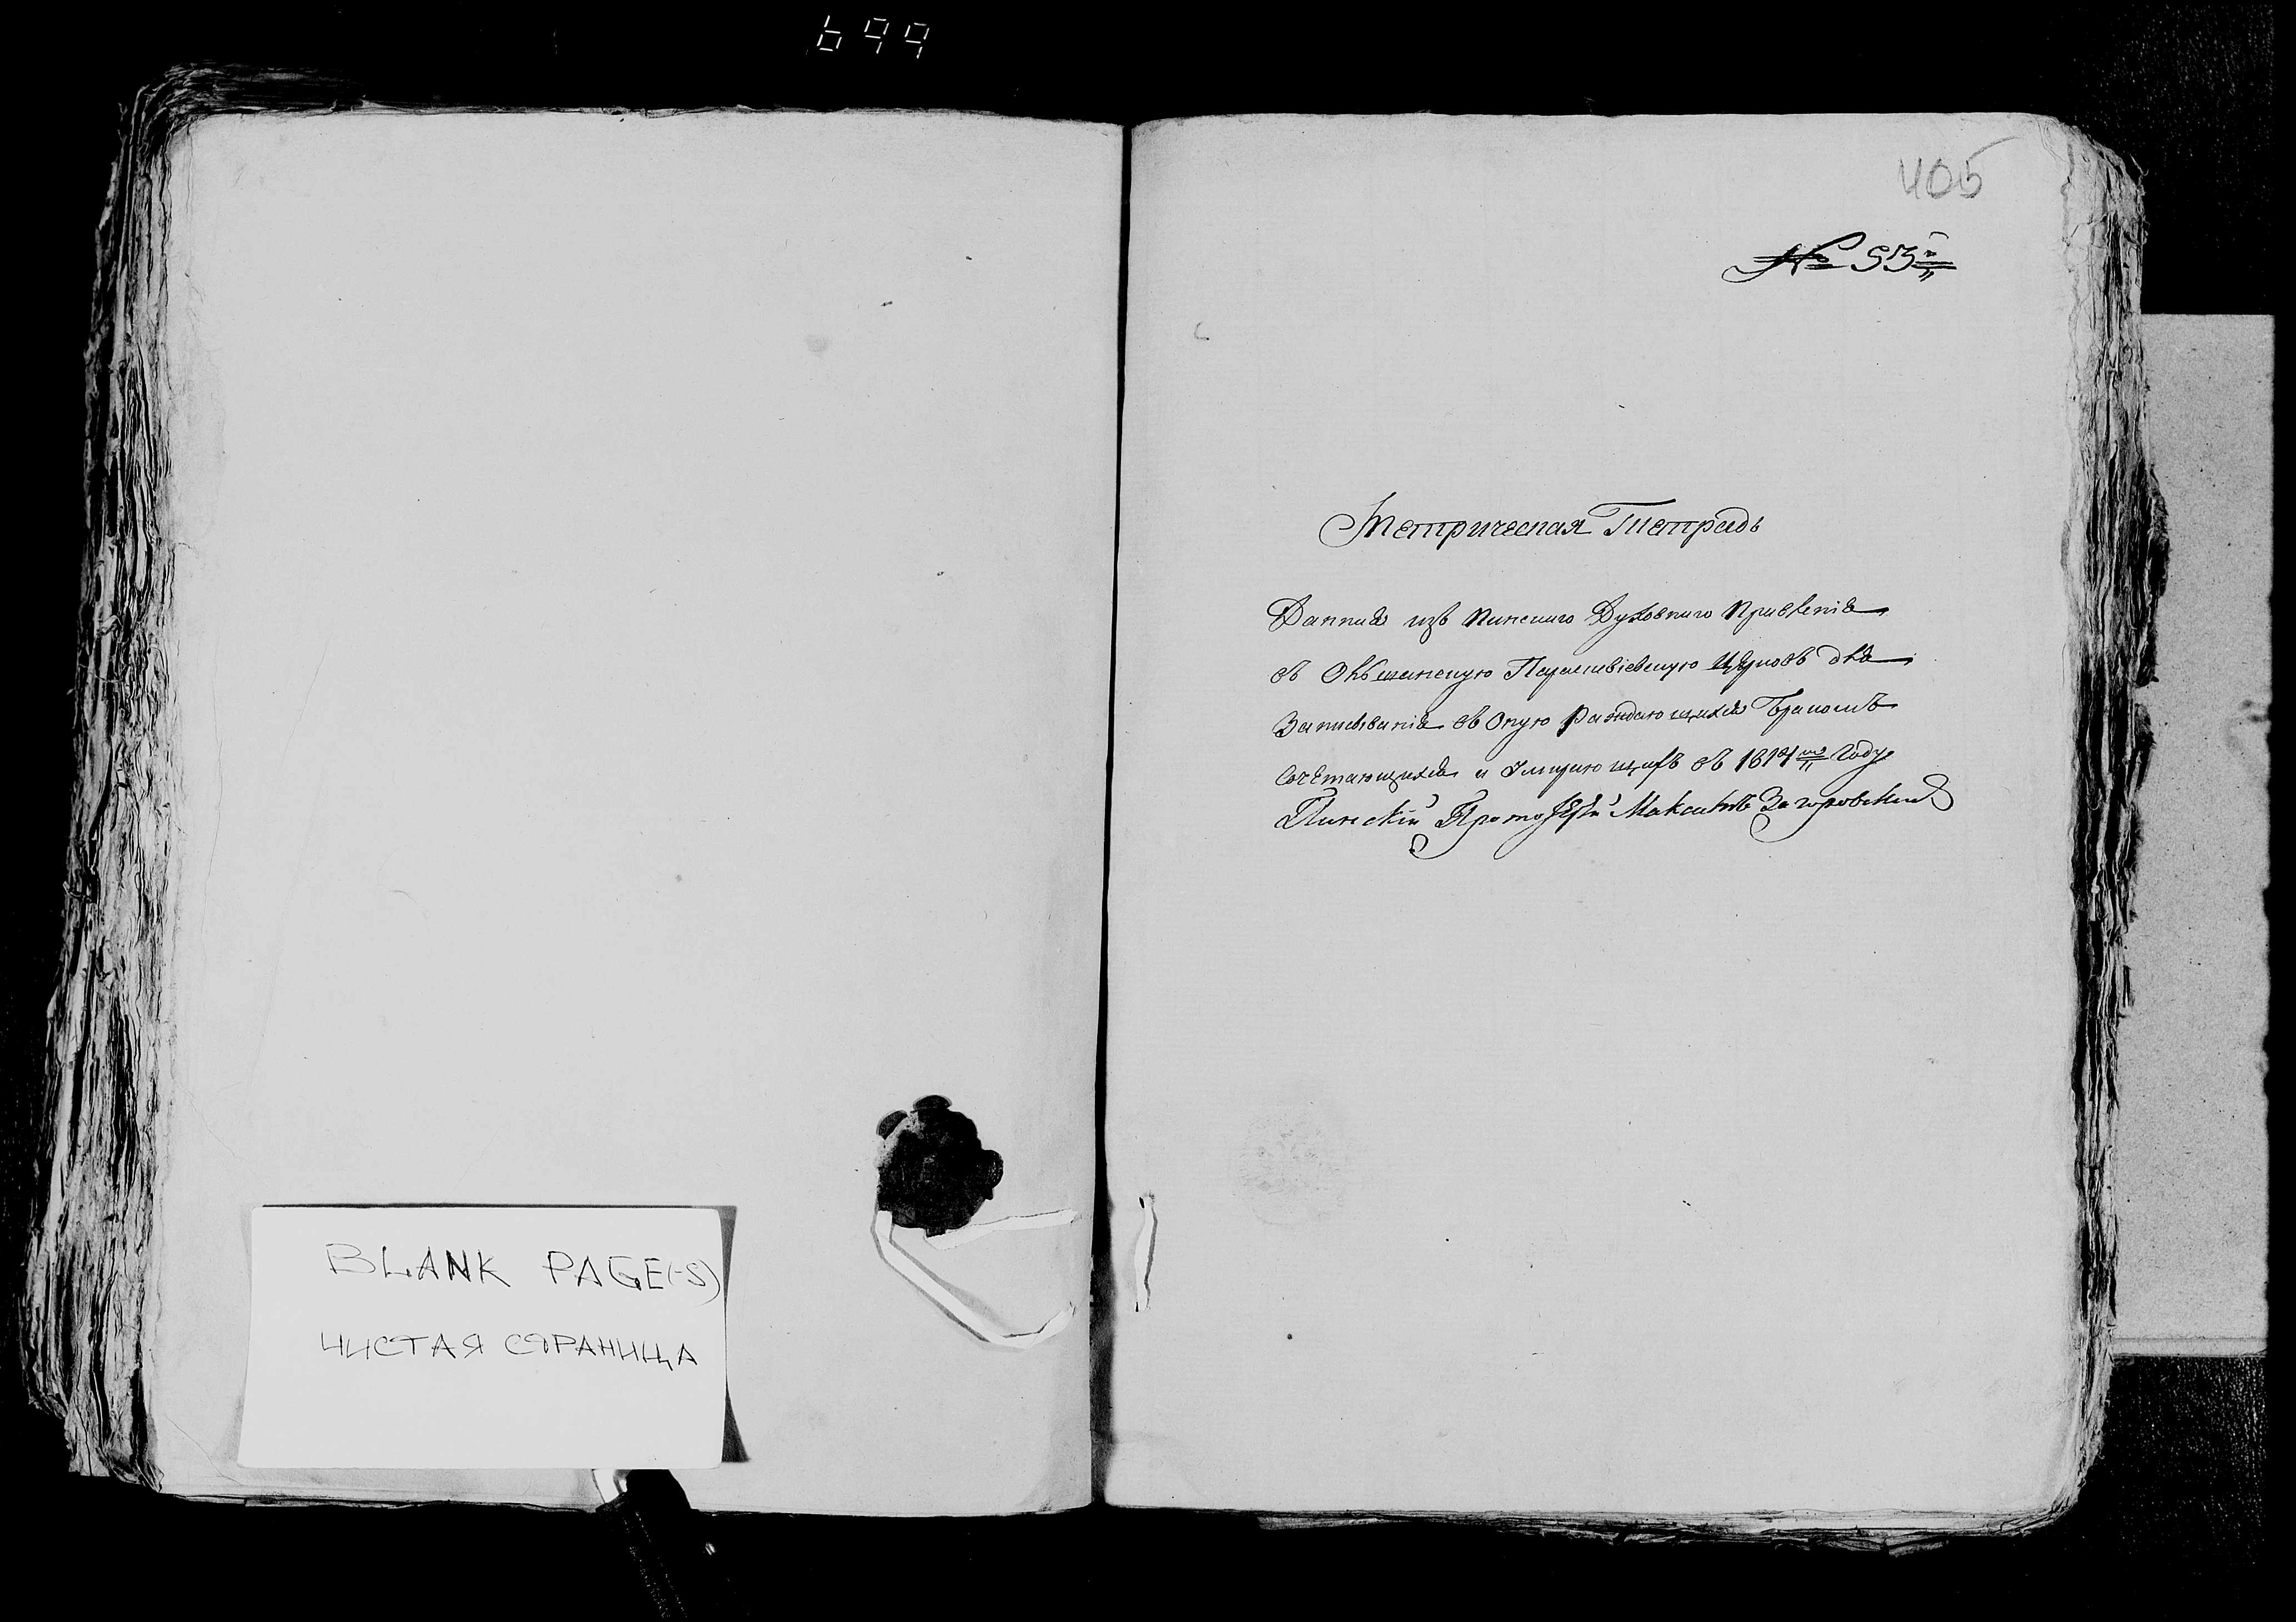 699
405
№ 53
Метрическая Тетрадь
Данная изъ Пинскаго Духовнаго Правленія
въ Парасквіевскую Церковъ для
Записыванія въ Оную Раждающихся Бракомъ
Сочетающихся и Умирающихъ въ 1814мъ Году
Пинскій Протоіерей Максимъ Загоровскій
BLANK PAGE(-S)
ЧИСТАЯ СТРАНИЦА